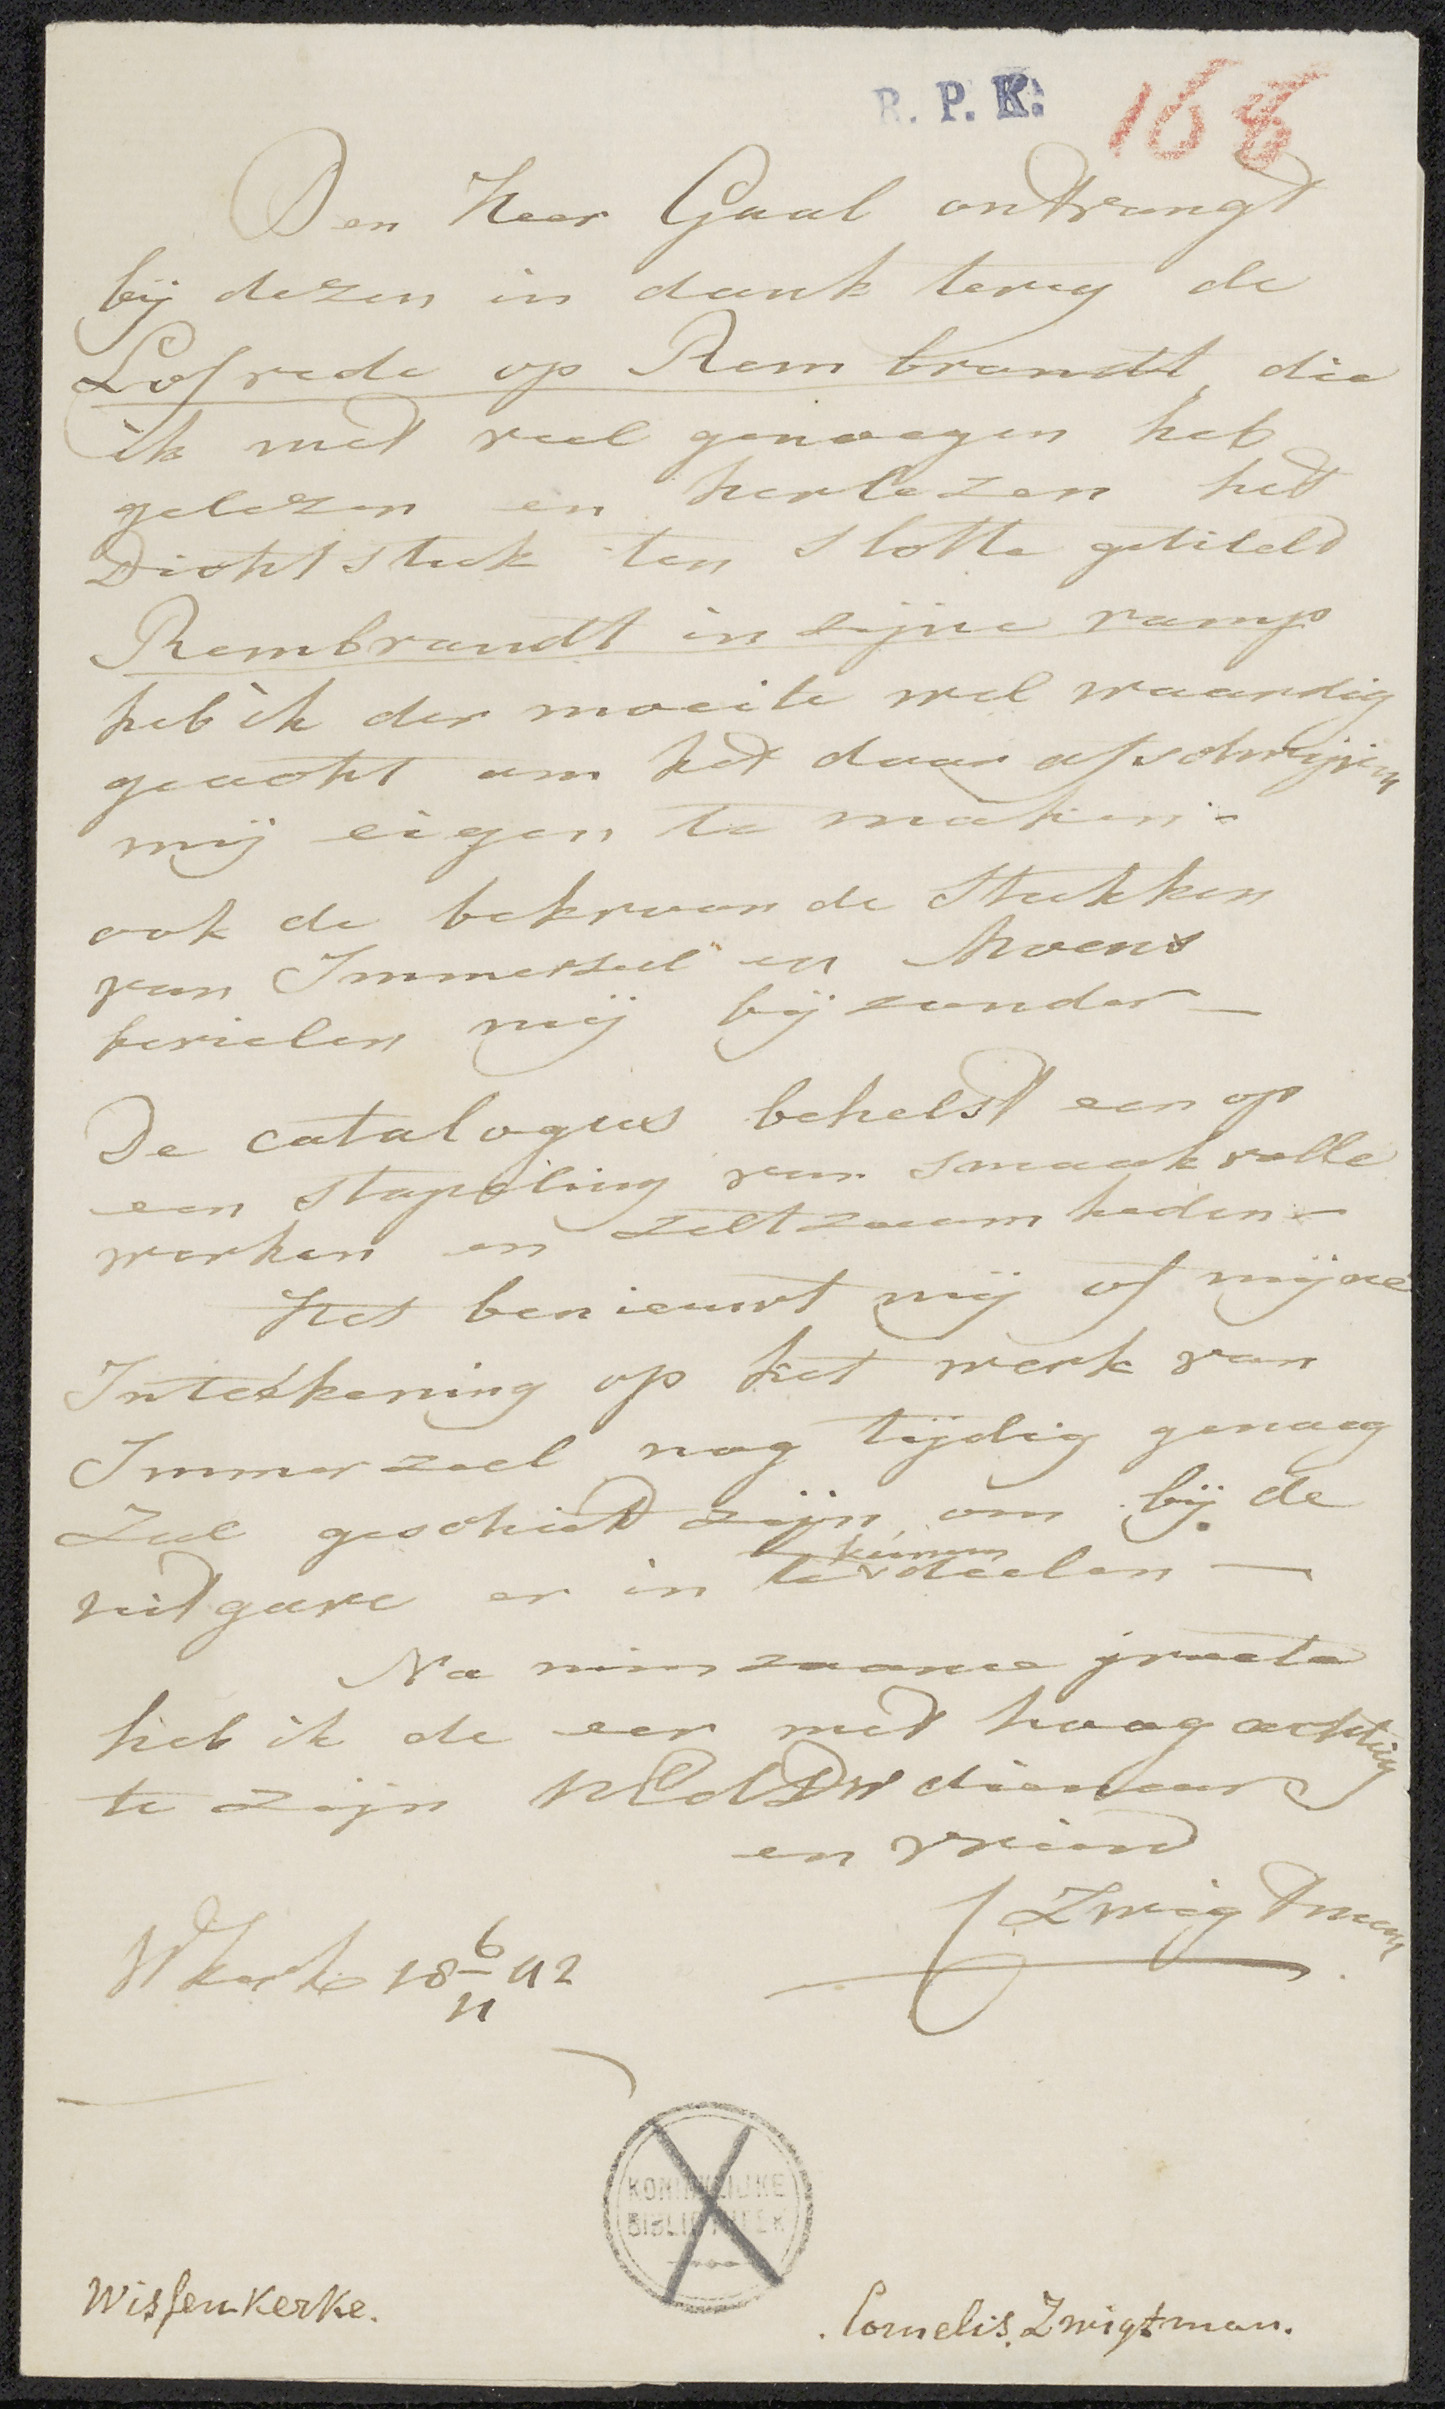 R. P. K:
168
Den Heer Gaal ontvangt
bij dezen in dank terug de
Lofrede op Rembrandt, die
ik met veel genoegen heb
gelezen en herlezen het
Dichtstuk ten slotte getiteld
Rembrandt in zijne ramp
heb ik der moeite wel waardig
geacht om het door afschrijven
mij eigen te maken -
ook de bekroonde stukken
van Immerzeel en Moens
bevielen mij bijzonder -
De catalogus behelst een op
een stapeling van smaakvolle
werken en zeltzaamheden -
Het benieuwt mij of mijne
Intekening op het werk van
Immerzeel nog tijdig genoeg
Zal geschied zijn, om bij de
uitgave er in te kunnen deelen -
Na minzaame groete
heb ik de eer met hoogachting
te zijn UEdDW dienaar
en vriend
C Zwigtman
WKerke 18 6/11 42
KONINKLIJKE
BIBLIOTHEEK
Wissenkerke.
Cornelis Zwigtman.